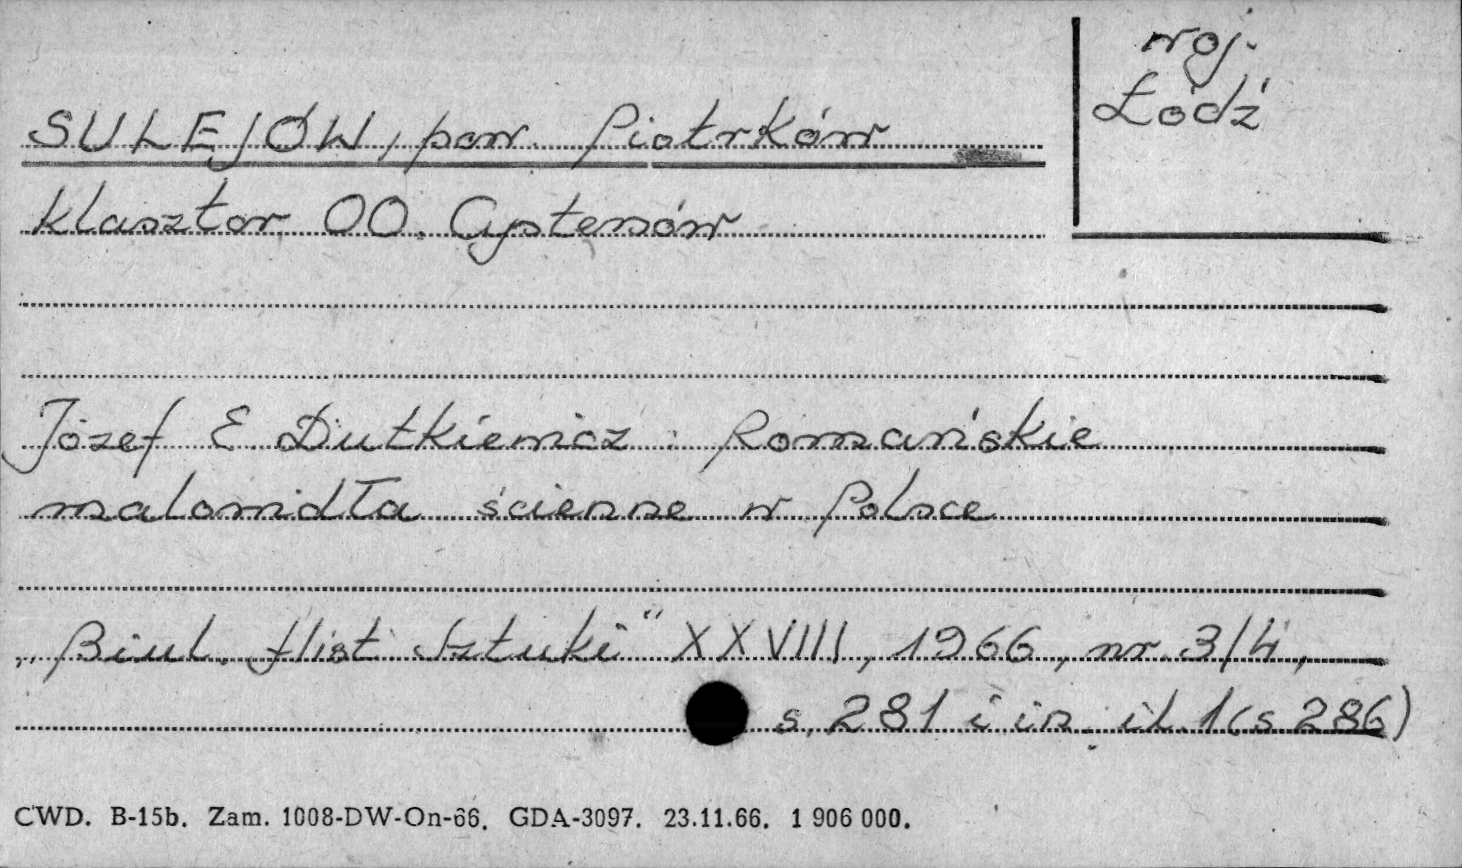 woj.
Łódź
SULEJÓW, pow. Piotrków
Klasztor OO. Cystersów
Józef E Dutkiewicz : Romańskie
malowidła ścienne w Polsce
„Biul. Hist Sztuki" XXVIII, 1966, nr 3/4,
s. 281 i in. il. 1 (s 286)
CWD. B-15b. Zam. 1008-DW-On-66. GDA-3097. 23.11.66. 1 906 000.